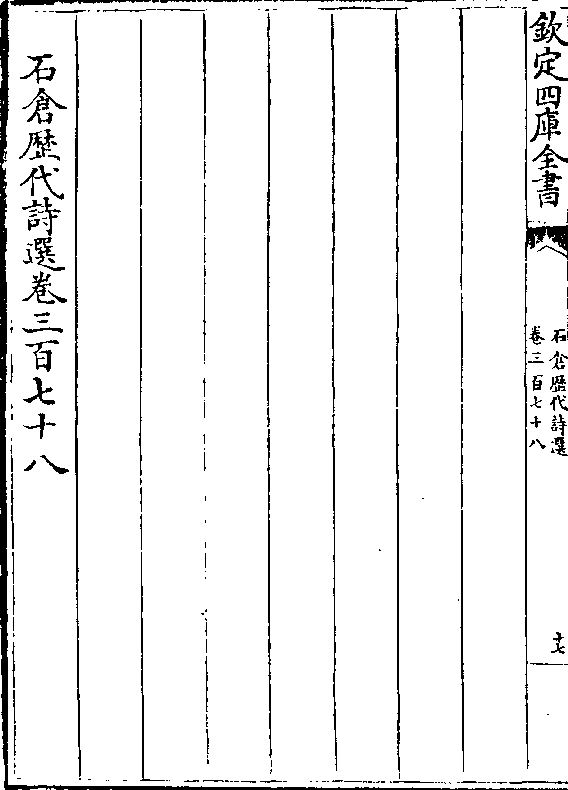 欽定四庫全書
石倉歴代詩選
卷三百七十八
十七
石倉歴代詩選卷三百七十八